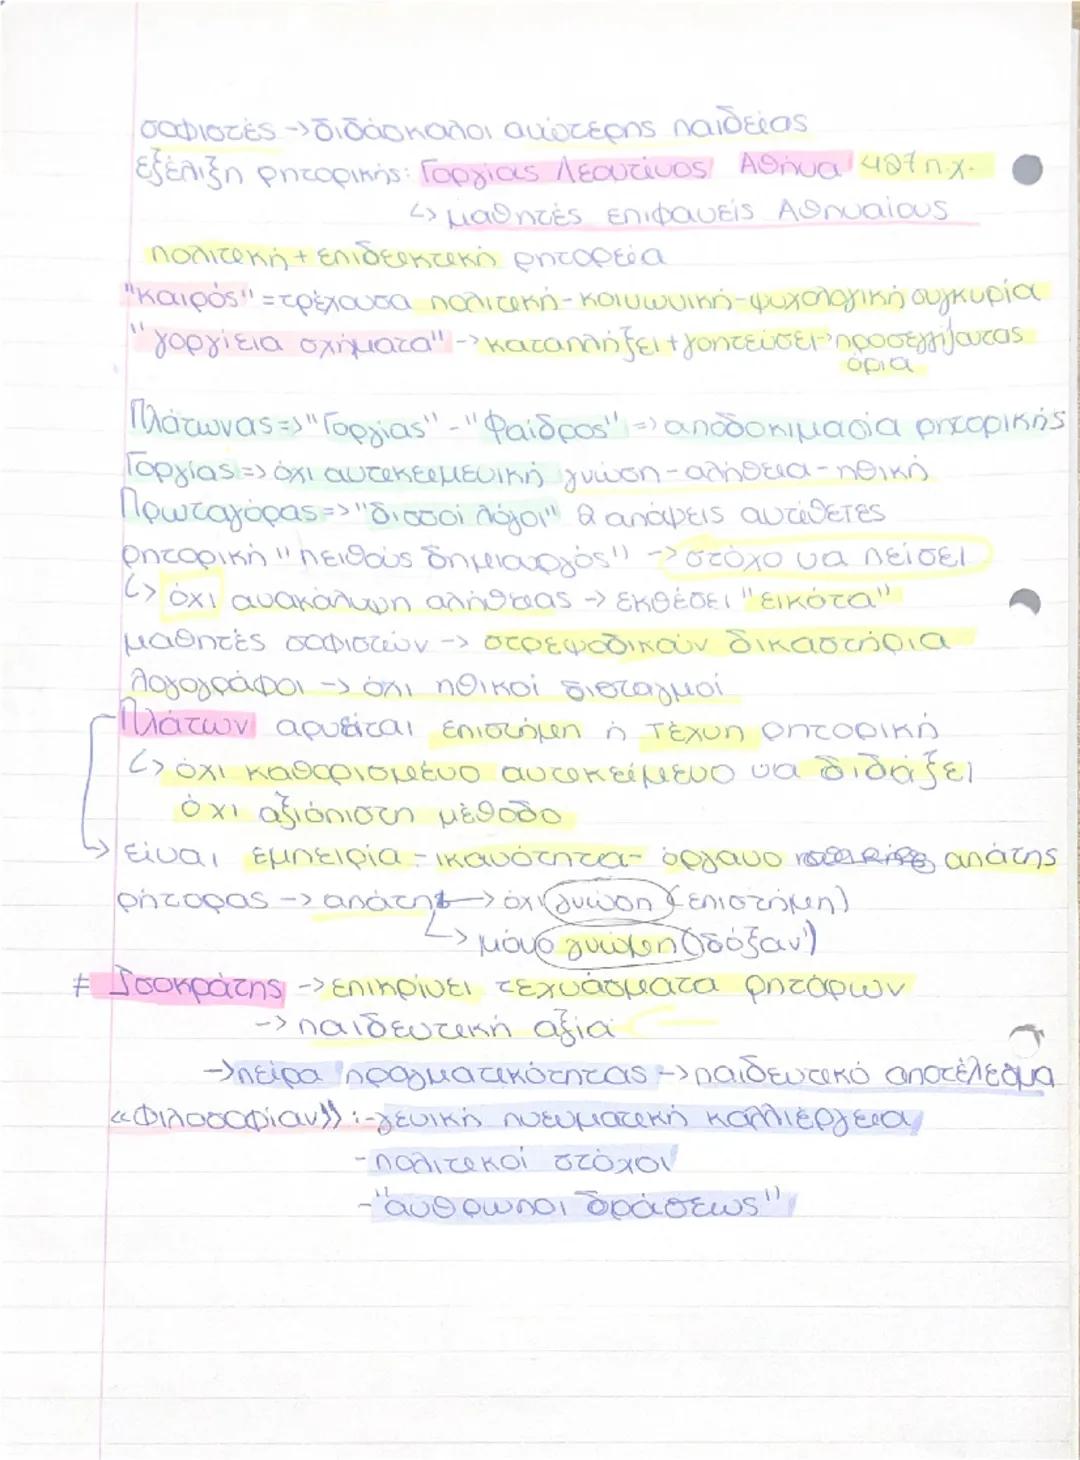 σοφιστές -> διδάσκαλοι ανώτερης παιδείας
εξέλιξη ρητορικής: Γοργίας Λεοντίνος Αθήνα 427 π.χ.
↳ μαθητές επιφανείς Αθηναίους
πολιτική + επιδεικτική ρητορεία
"καιρός" = τρέχουσα πολιτική - κοινωνική - ψυχολογική συγκυρία
"γοργίεια σχήματα" -> καταπλήξει + γοητεύσει -> προσεγγίζοντας
όρια
Πλάτωνας => "Γοργίας" - "Φαίδρος" => αποδοκιμασία ρητορικής
Γοργίας => όχι αντικειμενική γνώση - αλήθεια - ηθική
Πρωταγόρας => "δισσοί λόγοι" 2 απόψεις αντίθετες
ρητορική "πειθούς δημιουργός" -> στόχο να πείσει
↳ όχι ανακάλυψη αλήθειας -> εκθέσει "εικότα"
μαθητές σοφιστών -> στρεψοδικούν δικαστήρια
λογογράφοι -> όχι ηθικοί δισταγμοί
Πλάτων αρνείται επιστήμη ή τέχνη ρητορική
↳ όχι καθορισμένο αντικείμενο να διδάξει
όχι αξιόπιστη μέθοδο
είναι εμπειρία - ικανότητα - όργανο απάτης
ρήτορας -> απάτη -> όχι γνώση (επιστήμη)
↳ μόνο γνώμη (δόξαν)
≠ Ισοκράτης -> επικρίνει τεχνάσματα ρητόρων
-> παιδευτική αξία
-> πείρα πραγματικότητας -> παιδευτικό αποτέλεσμα
«Φιλοσοφίαν» : - γενική πνευματική καλλιέργεια
- πολιτικοί στόχοι
- "άνθρωποι δράσεως"